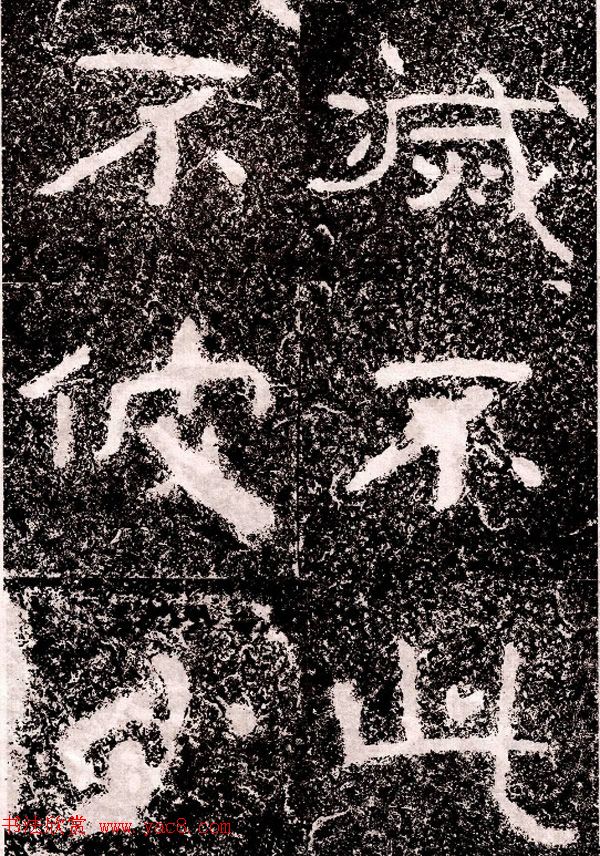 滅不此
不彼
书法欣赏 www.yac8.com